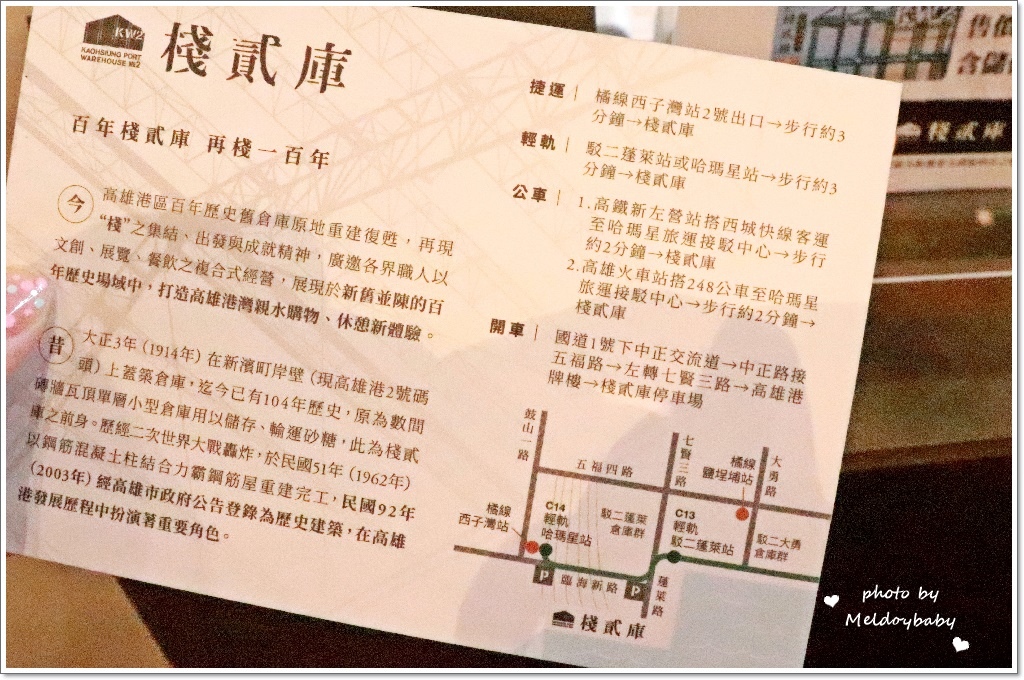 KW2
KAOHSIUNG PORT
WAREHOUSE No.2
棧貳庫
百年棧貳庫 再棧一百年
今
高雄港區百年歷史舊倉庫原地重建復甦，再現
“棧”之集結、出發與成就精神，廣邀各界職人以
文創、展覽、餐飲之複合式經營，展現於新舊並陳的百
年歷史場域中，打造高雄港灣親水購物、休憩新體驗。
昔
大正3年（1914年）在新濱町岸壁（現高雄港2號碼
頭）上蓋築倉庫，迄今已有104年歷史，原為數間
磚牆瓦頂單層小型倉庫用以儲存、輸運砂糖，此為棧貳
庫之前身。歷經二次世界大戰轟炸，於民國51年（1962年）
以鋼筋混凝土柱結合力霸鋼筋屋重建完工，民國92年
（2003年）經高雄市政府公告登錄為歷史建築，在高雄
港發展歷程中扮演著重要角色。
捷運｜橘線西子灣站2號出口→步行約3
分鐘→棧貳庫
輕軌｜駁二蓬萊站或哈瑪星站→步行約3
分鐘→棧貳庫
公車｜1.高鐵新左營站搭西城快線客運
至哈瑪星旅運接駁中心→步行
約2分鐘→棧貳庫
2.高雄火車站搭248公車至哈瑪星
旅運接駁中心→步行約2分鐘→
棧貳庫
開車｜國道1號下中正交流道→中正路接
五福路→左轉七賢三路→高雄港
牌樓→棧貳庫停車場
鼓山一路
五福四路
七賢三路
橘線
鹽埕埔站
大勇路
橘線
西子灣站
C14
輕軌
哈瑪星站
駁二蓬萊
倉庫群
C13
輕軌
駁二蓬萊站
駁二大勇
倉庫群
P
臨海新路
P
蓬萊路
棧貳庫
售價
含儲
棧貳庫
photo by
Meldoybaby